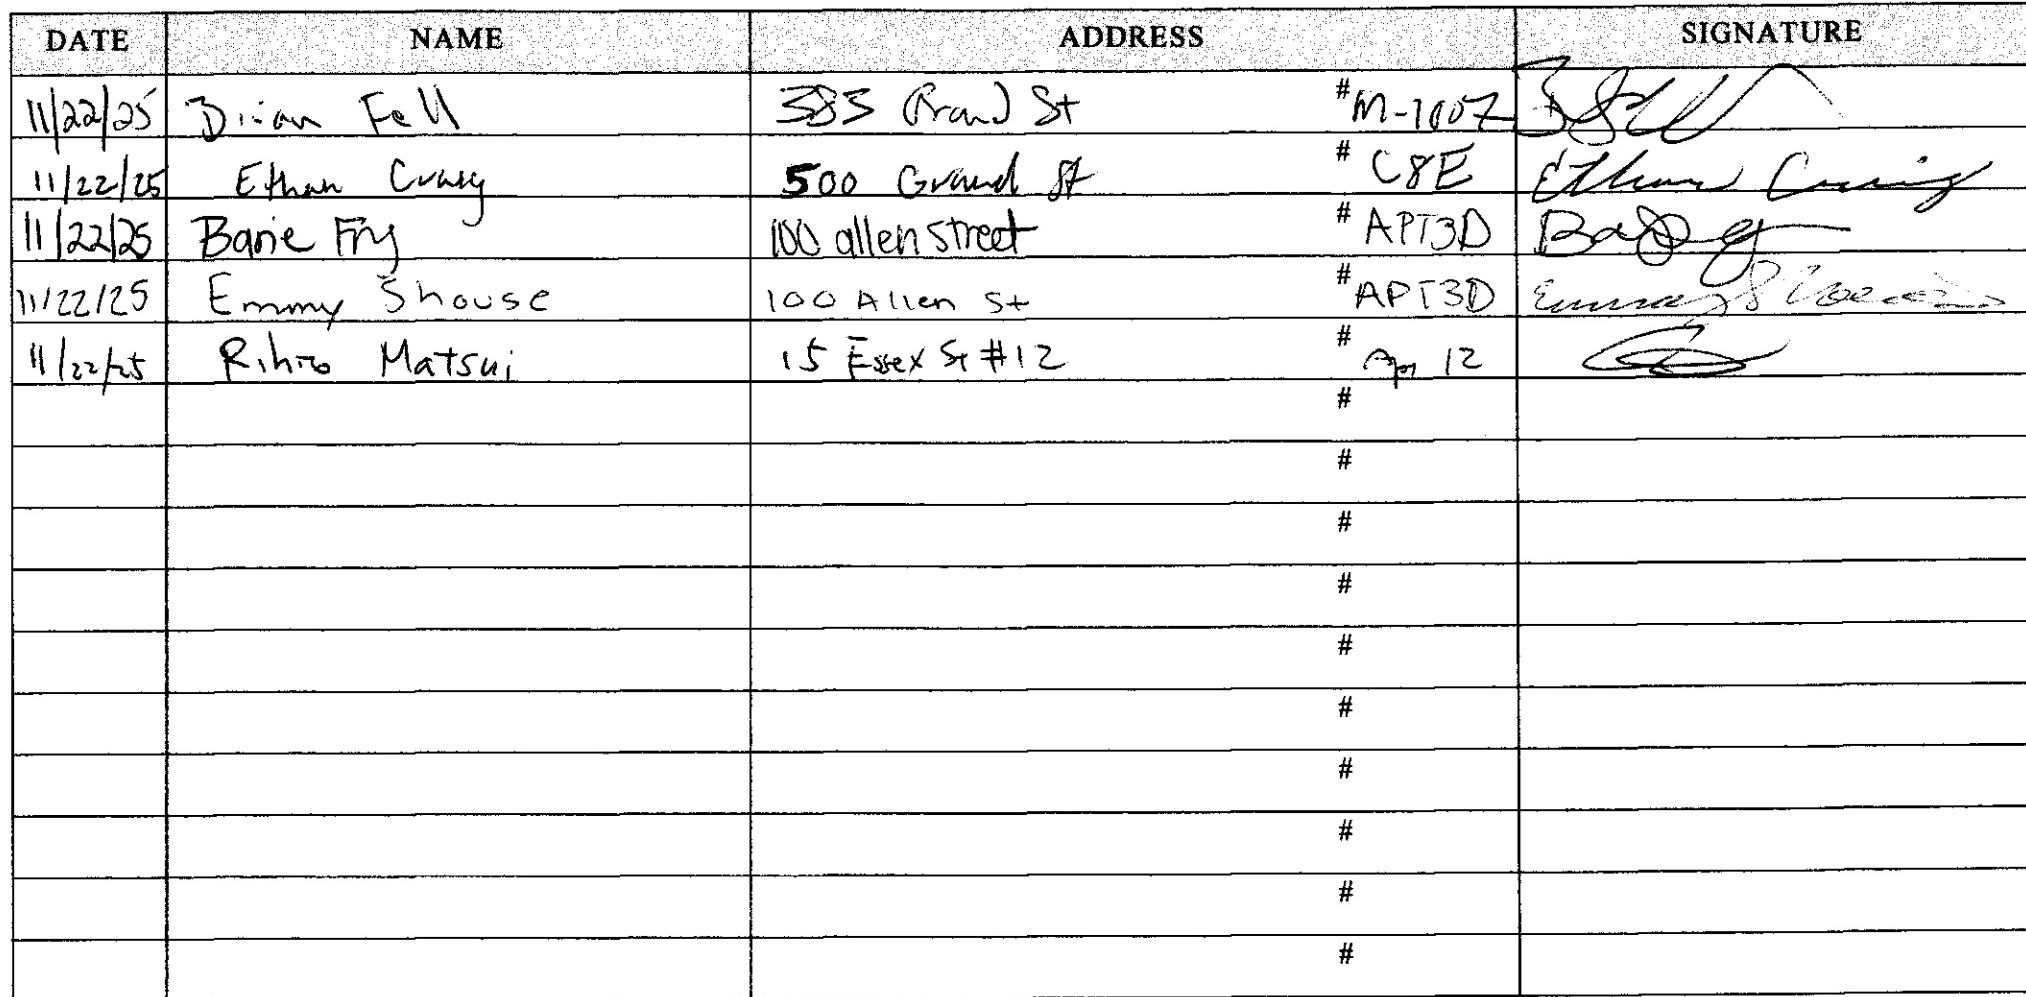 DATE NAME ADDRESS SIGNATURE
11/22/25 Brian Fell 383 Grand St # M-1007
11/22/25 Ethan Craig 500 Grand St # C8E Ethan Craig
11/22/25 Barie Fry 100 allen street # APT3D
11/22/25 Emmy Shouse 100 Allen St # APT3D Emmy Shouse
11/22/25 Rihito Matsui 15 Essex St #12 # Apt 12
#
#
#
#
#
#
#
#
#
#